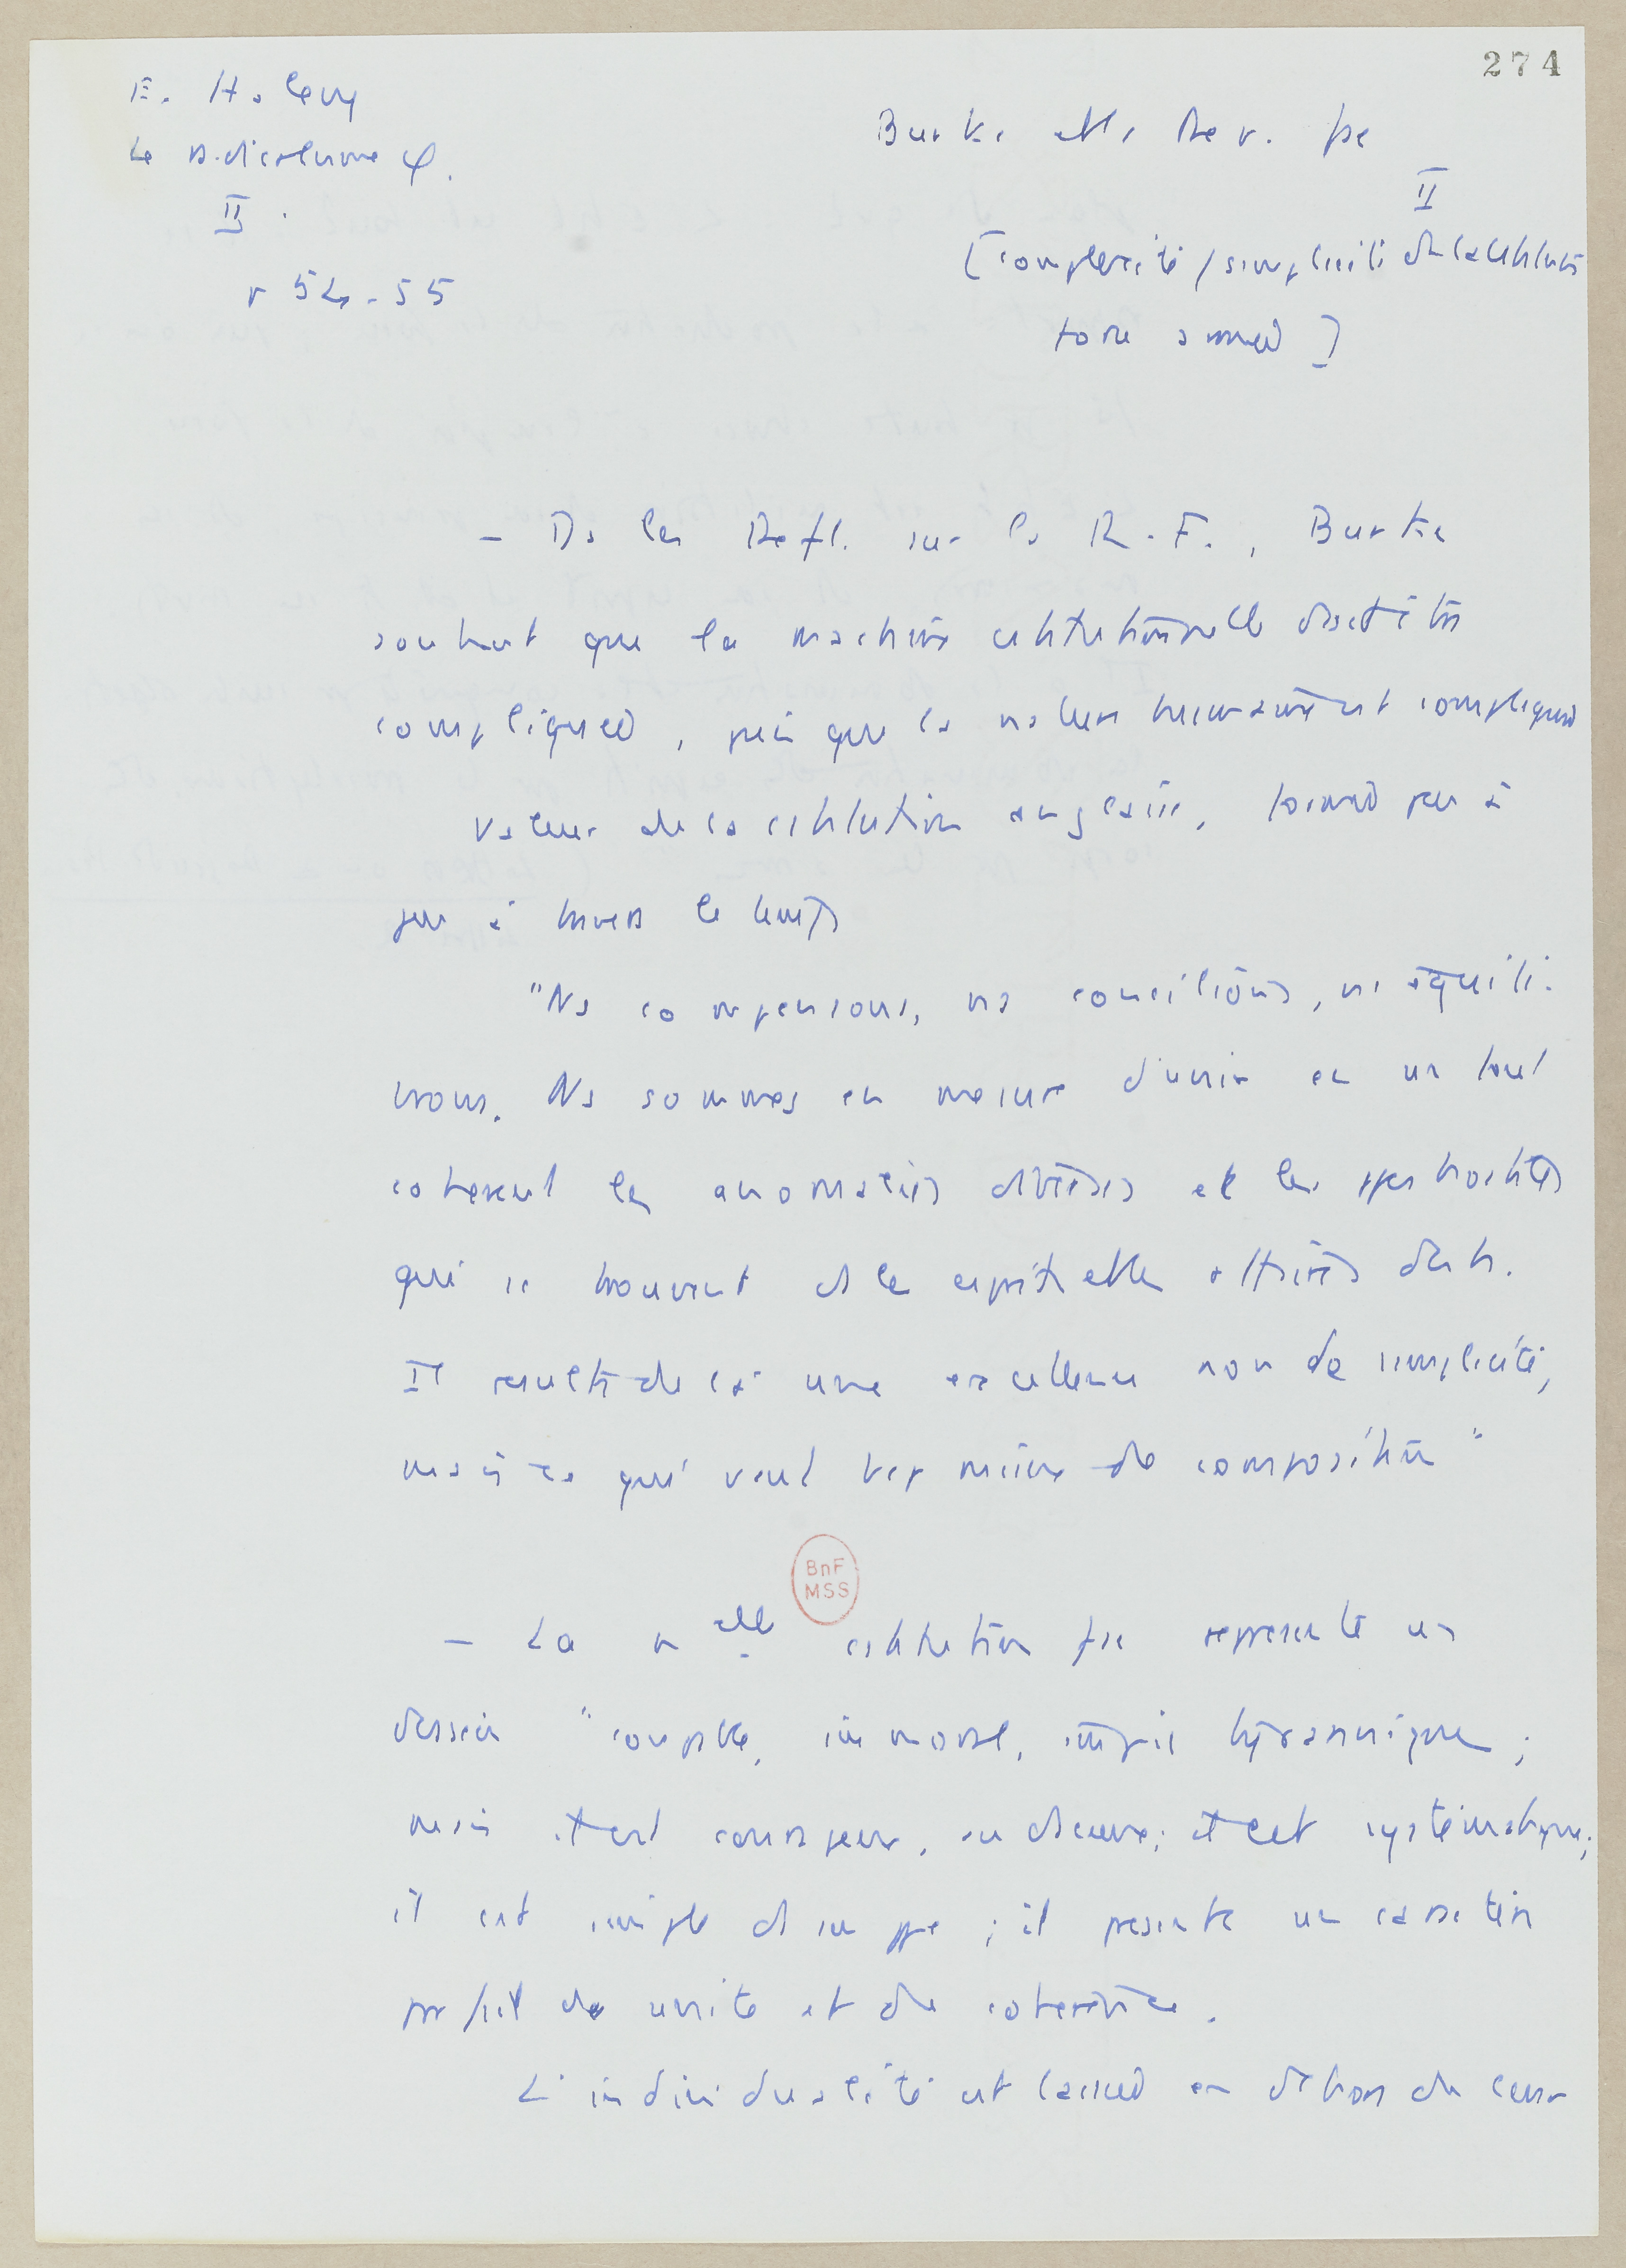 274
E. Halevy
Le Radicalisme φ.
II.
p 54-55
Burke et la Rev. fse
II
[complexité / simplicité de la cstitution
force armée]
– Ds les Refl. sur la R.F., Burke
soutient que la machine cstitutionnelle doit être
compliquée, puisque la nature humaine est compliquée
Valeur de la cstitution anglaise, formée peu à
peu à travers le temps
"Ns compensons, ns concilions, ns équili-
brons. Ns sommes en mesure d'unir en un tout
coherent les anomalies diverses et les pps
qui se trouvent ds les esprits et les affaires des h.
Il resulte de là une excellence non de simplicité,
mais ce qui vaut bcp mieux de composition"
BnF
MSS
– La nelle cstitution fse represente un
dessein "coupable, immoral, impie tyrannique ;
mais il est courageux, audacieux ; il est systématique ;
il est simple ds son ppe ; il presente un caractère
parfait de unité et de coherence.
L'individualité est laissée en dehors de leur